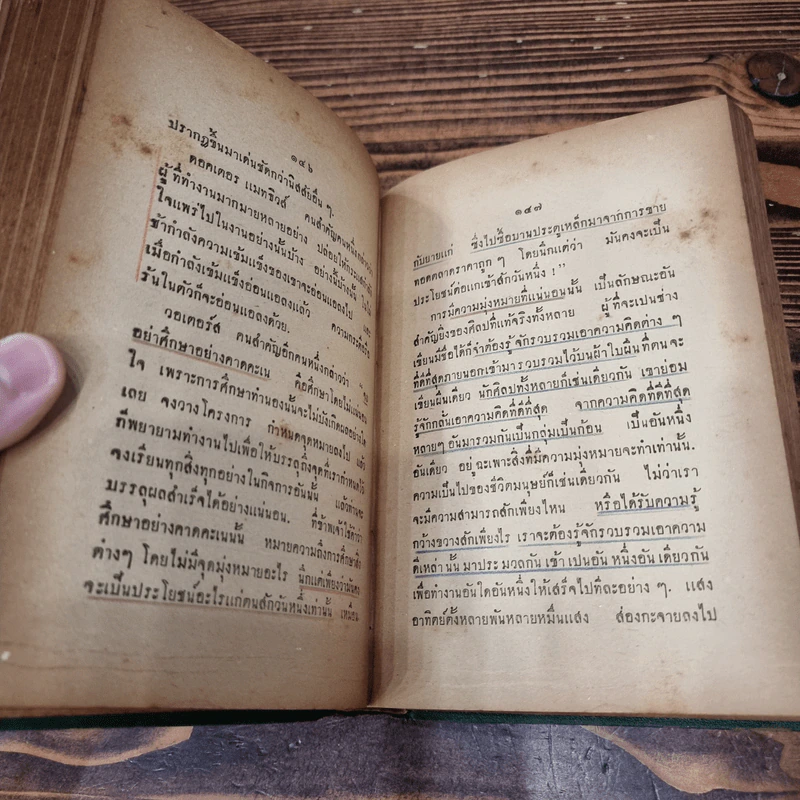 ๑๔๖
ปรากฏขึ้นมาเด่นชัดกว่านิสสัยอื่น ๆ.
ดอคเตอร แมทธิวส์ คนสำคัญคนหนึ่งกล่าว
ผู้ที่ทำงานมากมายหลายอย่าง ปล่อยให้กระแส
ใจแพร่ไปในงานอย่างนั้นบ้าง อย่างนี้บ้างนั้น ไม่
ช้ากำลังความเข้มแข็งของเขาจะอ่อนแอลงไป และ
เมื่อกำลังเข้มแข็งอ่อนแอลงแล้ว ความกระตือรือ
ร้นในตัวก็จะอ่อนแอลงด้วย.
วอเตอร์ส คนสำคัญอีกคนหนึ่งกล่าวว่า
อย่าศึกษาอย่างคาดคะเน คือศึกษาโดยไม่แน่นอน
ใจ เพราะการศึกษาทำนองนั้นจะไม่บังเกิดผลอย่างใด
เลย จงวางโครงการ กำหนดจุดหมายลงไป แล้ว
ก็พยายามทำงานไปเพื่อให้บรรลุถึงจุดที่เรากำหนดไว้
จงเรียนทุกสิ่งทุกอย่างในกิจการอันนั้น แล้วท่านจะ
บรรลุผลสำเร็จได้อย่างแน่นอน. ที่ข้าพเจ้าใช้คำว่า
ศึกษาอย่างคาดคะเนนั้น หมายความถึงการศึกษาสิ่ง
ต่างๆ โดยไม่มีจุดมุ่งหมายอะไร นึกแต่เพียงว่ามันคง
จะเป็นประโยชน์อะไรแก่ตนสักวันหนึ่งเท่านั้น เหมือน
๑๔๗
กับยายแก่ ซึ่งไปซื้อบานประตูเหล็กมาจากการขาย
ทอดตลาดราคาถูก ๆ โดยนึกแต่ว่า มันคงจะเป็น
ประโยชน์ต่อแกเข้าสักวันหนึ่ง !"
การมีความมุ่งหมายที่แน่นอนนั้น เป็นลักษณะอัน
สำคัญยิ่งของศิลปที่แท้จริงทั้งหลาย ผู้ที่จะเปนช่าง
เขียนมีชื่อได้ก็จำต้องรู้จักรวบรวมเอาความคิดต่าง ๆ
ที่ดีที่สุดภายนอกเข้ามารวบรวมไว้บนผ้าใบผืนที่ตนจะ
เขียนผืนเดียว นักศิลปทั้งหลายก็เช่นเดียวกัน เขาย่อม
รู้จักกลั่นเอาความคิดที่ดีที่สุด จากความคิดที่ดีที่สุด
หลายๆ อันมารวมกันเป็นกลุ่มเป็นก้อน เป็นอันหนึ่ง
อันเดียว อยู่ฉะเพาะสิ่งที่มีความมุ่งหมายจะทำเท่านั้น.
ความเป็นไปของชีวิตมนุษย์ก็เช่นเดียวกัน ไม่ว่าเรา
จะมีความสามารถสักเพียงไหน หรือได้รับความรู้
กว้างขวางสักเพียงไร เราจะต้องรู้จักรวบรวมเอาความ
ดีเหล่านั้น มาประมวลกันเข้า เปนอันหนึ่งอันเดียวกัน
เพื่อทำงานอันใดอันหนึ่งให้เสร็จไปทีละอย่าง ๆ. แสง
อาทิตย์ตั้งหลายพันหลายหมื่นแสง ส่องกะจายลงไป